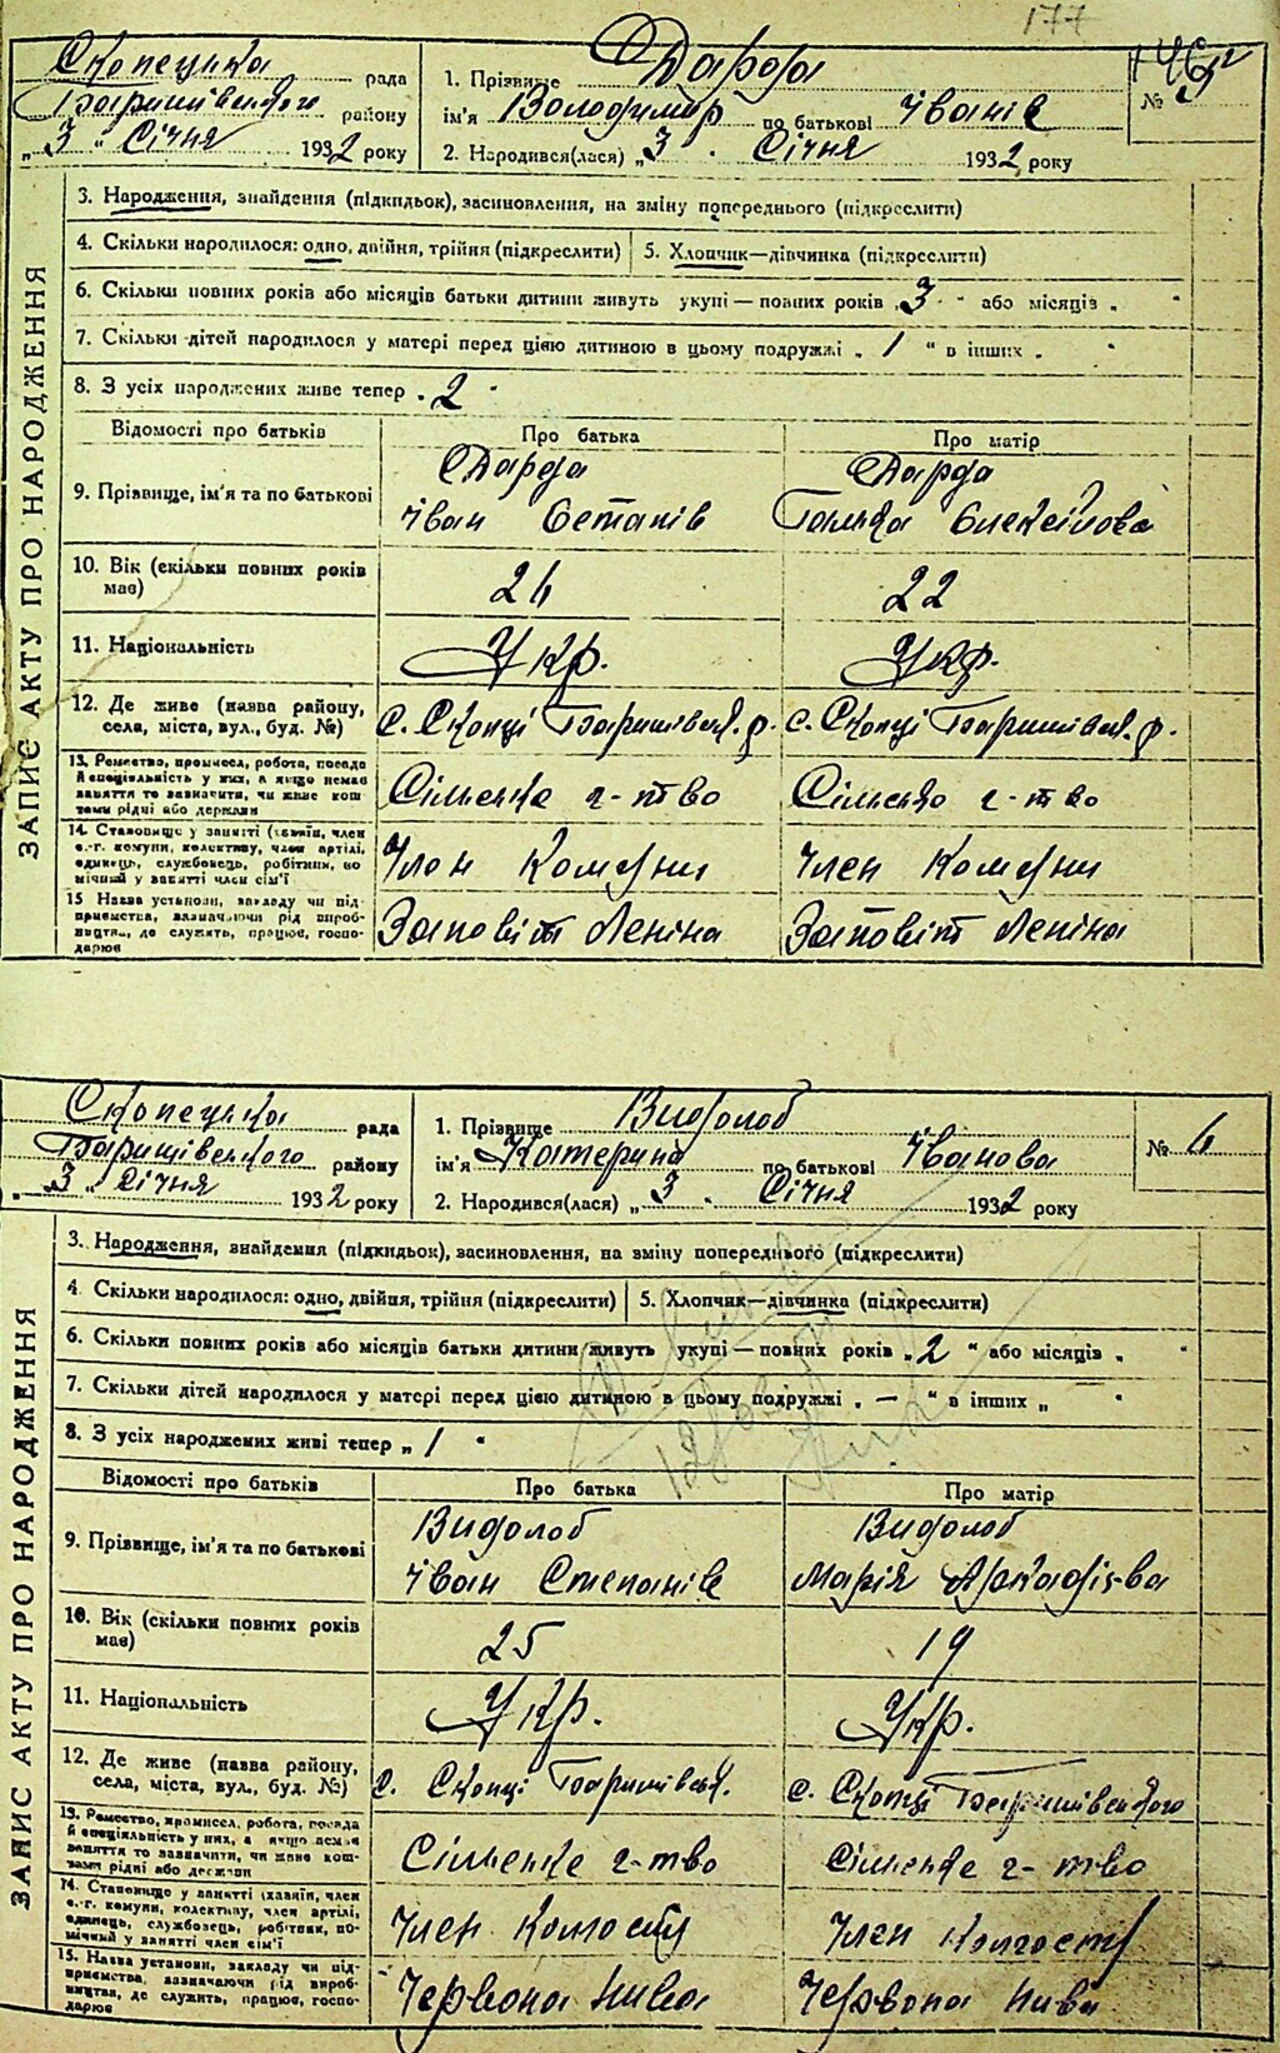 177
Скопецька рада
Баришівського району
„ 3 “ Січня 1932 року
1. Прізвище Дарда
ім'я Володимир по батькові Іванів
2. Народився(лася) „ 3 “ Січня 1932 року
№
ЗАПИС АКТУ ПРО НАРОДЖЕННЯ
3. Народження, знайдення (підкидьок), засиновлення, на зміну попереднього (підкреслити)
4. Скільки народилося: одно, двійня, трійня (підкреслити) 5. Хлопчик—дівчинка (підкреслити)
6. Скільки повних років або місяців батьки дитини живуть укупі — повних років „ 3 “ або місяців „ “
7. Скільки дітей народилося у матері перед цією дитиною в цьому подружжі „ 1 “ в інших „ “
8. З усіх народжених живе тепер „ 2 “
Відомості про батьків Про батька Про матір
9. Прізвище, ім'я та по батькові
Дарда Дарда
Іван Остапів Галька Олексійова
10. Вік (скільки повних років має) 24 22
11. Національність Укр. Укр.
12. Де живе (назва району, села, міста, вул., буд. №)
с. Скопці Баришівськ. р. с. Скопці Баришівськ. р.
13. Ремество, промисел, робота, посада
й спеціяльність у них, а якщо немає
заняття то зазначити, чи живе кош-
тами рідні або держави
Сільське г-тво Сільсько г-тво
14. Становище у занятті (хазяїн, член
с.-г. комуни, колективу, член артілі,
одинець, службовець, робітник, по
мічний у занятті член сім'ї
Член Комуни Член Комуни
15 Назва установи, закладу чи під-
приємства, зазначаючи рід вироб-
ництва, де служить, працює, госпо-
дарює
Заповіт Леніна Заповіт Леніна
Скопецька рада
Баришівського району
„ 3 “ Січня 1932 року
1. Прізвище Видолоб
ім'я Катерина по батькові Іванова
2. Народився(лася) „ 3 “ Січня 1932 року
№ 4
ЗАПИС АКТУ ПРО НАРОДЖЕННЯ
3. Народження, знайдення (підкидьок), засиновлення, на зміну попереднього (підкреслити)
4. Скільки народилося: одно, двійня, трійня (підкреслити) 5. Хлопчик—дівчинка (підкреслити)
6. Скільки повних років або місяців батьки дитини живуть укупі — повних років „ 2 “ або місяців „ “
7. Скільки дітей народилося у матері перед цією дитиною в цьому подружжі „ — “ в інших „ “
8. З усіх народжених живі тепер „ 1 “
Відомості про батьків Про батька Про матір
9. Прізвище, ім'я та по батькові
Видолоб Видолоб
Іван Степанів Марія Аркадієва
10. Вік (скільки повних років має) 25 19
11. Національність Укр. Укр.
12. Де живе (назва району, села, міста, вул., буд. №)
с. Скопці Баришівськ. с. Скопці Баришівського
13. Ремество, промисел, робота, посада
й спеціяльність у них, а якщо немає
заняття то зазначити, чи живе кош-
тами рідні або держави
Сільське г-тво Сільське г-тво
14. Становище у занятті (хазяїн, член
с.-г. комуни, колективу, член артілі,
одинець, службовець, робітник, по-
мічний у занятті член сім'ї
Член Колгоспу Член Колгоспу
15. Назва установи, закладу чи під-
приємства, зазначаючи рід вироб-
ництва, де служить, працює, госпо-
дарює
Червона Нива Червона Нива